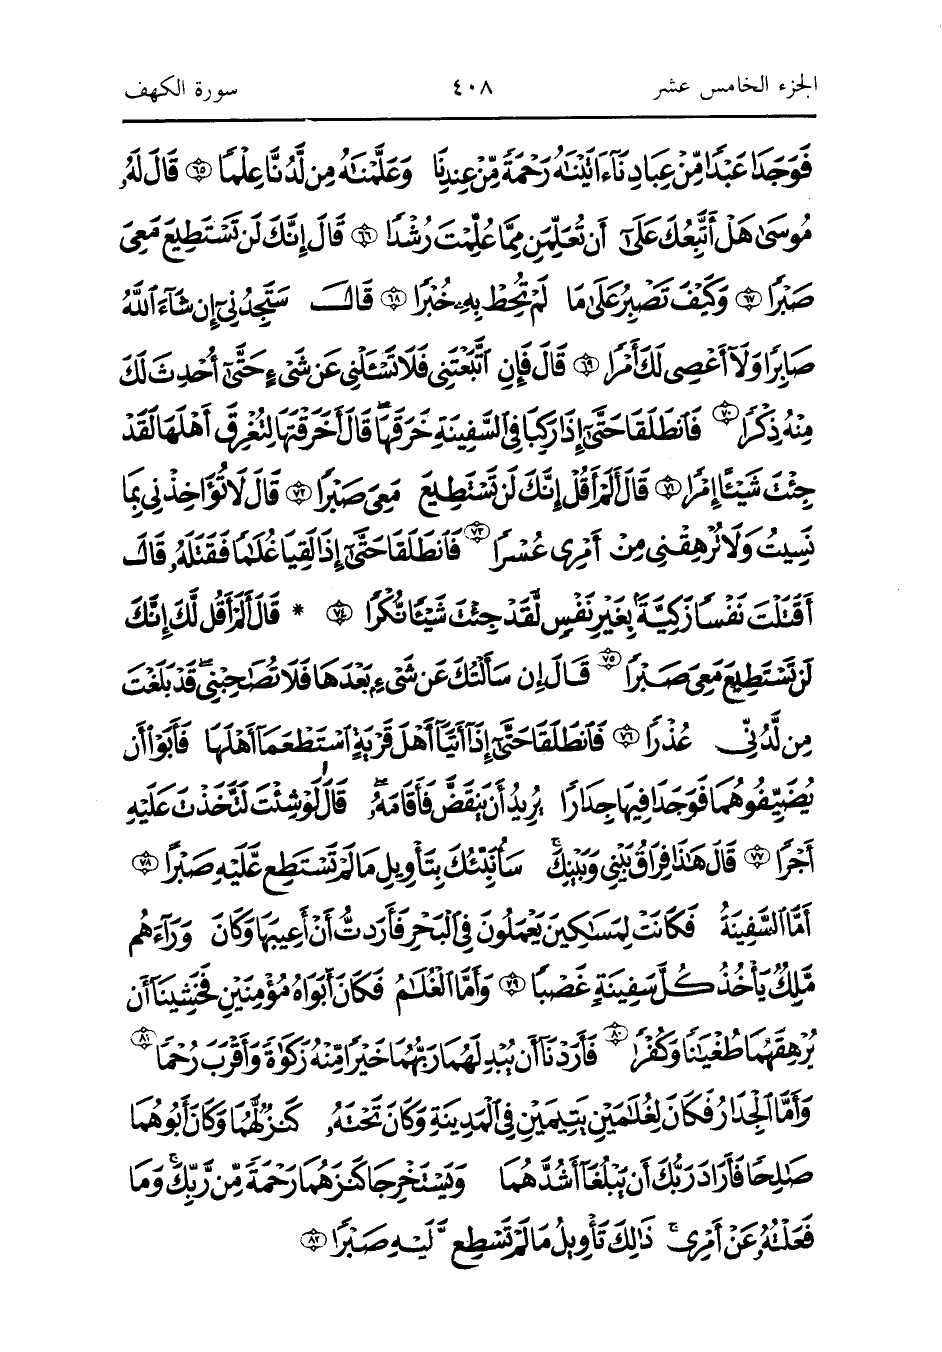 الجزء الخامس عشر ٤٠٨ سورة الكهف
فَوَجَدَا عَبْدًا مِّنْ عِبَادِنَآ ءَاتَيْنَٰهُ رَحْمَةً مِّنْ عِندِنَا وَعَلَّمْنَٰهُ مِن لَّدُنَّا عِلْمًا ٦٥ قَالَ لَهُۥ
مُوسَىٰ هَلْ أَتَّبِعُكَ عَلَىٰٓ أَن تُعَلِّمَنِ مِمَّا عُلِّمْتَ رُشْدًا ٦٦ قَالَ إِنَّكَ لَن تَسْتَطِيعَ مَعِىَ
صَبْرًا ٦٧ وَكَيْفَ تَصْبِرُ عَلَىٰ مَا لَمْ تُحِطْ بِهِۦ خُبْرًا ٦٨ قَالَ سَتَجِدُنِىٓ إِن شَآءَ ٱللَّهُ
صَابِرًا وَلَآ أَعْصِى لَكَ أَمْرًا ٦٩ قَالَ فَإِنِ ٱتَّبَعْتَنِى فَلَا تَسْـَٔلْنِى عَن شَىْءٍ حَتَّىٰٓ أُحْدِثَ لَكَ
مِنْهُ ذِكْرًا ٧٠ فَٱنطَلَقَا حَتَّىٰٓ إِذَا رَكِبَا فِى ٱلسَّفِينَةِ خَرَقَهَا ۖ قَالَ أَخَرَقْتَهَا لِتُغْرِقَ أَهْلَهَا لَقَدْ
جِئْتَ شَيْـًٔا إِمْرًا ٧١ قَالَ أَلَمْ أَقُلْ إِنَّكَ لَن تَسْتَطِيعَ مَعِىَ صَبْرًا ٧٢ قَالَ لَا تُؤَاخِذْنِى بِمَا
نَسِيتُ وَلَا تُرْهِقْنِى مِنْ أَمْرِى عُسْرًا ٧٣ فَٱنطَلَقَا حَتَّىٰٓ إِذَا لَقِيَا غُلَٰمًا فَقَتَلَهُۥ قَالَ
أَقَتَلْتَ نَفْسًا زَكِيَّةًۢ بِغَيْرِ نَفْسٍ لَّقَدْ جِئْتَ شَيْـًٔا نُّكْرًا ٧٤ * قَالَ أَلَمْ أَقُل لَّكَ إِنَّكَ
لَن تَسْتَطِيعَ مَعِىَ صَبْرًا ٧٥ قَالَ إِن سَأَلْتُكَ عَن شَىْءٍۭ بَعْدَهَا فَلَا تُصَٰحِبْنِى ۖ قَدْ بَلَغْتَ
مِن لَّدُنِّى عُذْرًا ٧٦ فَٱنطَلَقَا حَتَّىٰٓ إِذَآ أَتَيَآ أَهْلَ قَرْيَةٍ ٱسْتَطْعَمَآ أَهْلَهَا فَأَبَوْا۟ أَن
يُضَيِّفُوهُمَا فَوَجَدَا فِيهَا جِدَارًا يُرِيدُ أَن يَنقَضَّ فَأَقَامَهُۥ ۖ قَالَ لَوْ شِئْتَ لَتَّخَذْتَ عَلَيْهِ
أَجْرًا ٧٧ قَالَ هَٰذَا فِرَاقُ بَيْنِى وَبَيْنِكَ ۚ سَأُنَبِّئُكَ بِتَأْوِيلِ مَا لَمْ تَسْتَطِع عَّلَيْهِ صَبْرًا ٧٨
أَمَّا ٱلسَّفِينَةُ فَكَانَتْ لِمَسَٰكِينَ يَعْمَلُونَ فِى ٱلْبَحْرِ فَأَرَدتُّ أَنْ أَعِيبَهَا وَكَانَ وَرَآءَهُم
مَّلِكٌ يَأْخُذُ كُلَّ سَفِينَةٍ غَصْبًا ٧٩ وَأَمَّا ٱلْغُلَٰمُ فَكَانَ أَبَوَاهُ مُؤْمِنَيْنِ فَخَشِينَآ أَن
يُرْهِقَهُمَا طُغْيَٰنًا وَكُفْرًا ٨٠ فَأَرَدْنَآ أَن يُبْدِلَهُمَا رَبُّهُمَا خَيْرًا مِّنْهُ زَكَوٰةً وَأَقْرَبَ رُحْمًا ٨١
وَأَمَّا ٱلْجِدَارُ فَكَانَ لِغُلَٰمَيْنِ يَتِيمَيْنِ فِى ٱلْمَدِينَةِ وَكَانَ تَحْتَهُۥ كَنزٌ لَّهُمَا وَكَانَ أَبُوهُمَا
صَٰلِحًا فَأَرَادَ رَبُّكَ أَن يَبْلُغَآ أَشُدَّهُمَا وَيَسْتَخْرِجَا كَنزَهُمَا رَحْمَةً مِّن رَّبِّكَ ۚ وَمَا
فَعَلْتُهُۥ عَنْ أَمْرِى ۚ ذَٰلِكَ تَأْوِيلُ مَا لَمْ تَسْطِع ّلَيْهِ صَبْرًا ٨٢